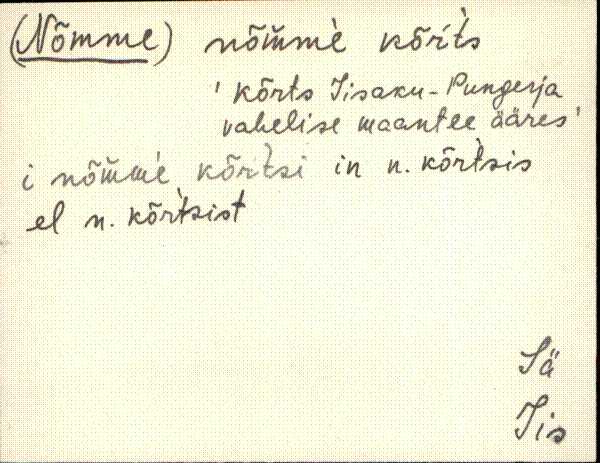 (Nõmme) nõm̆mè kõŕt̀s
'kõrts Iisaku-Pungerja
vahelise maantee ääres'
i nõm̆mè kõŕt̀si in n. kõrt̀sis
el n. kõrt̀sist
Sä
Iis